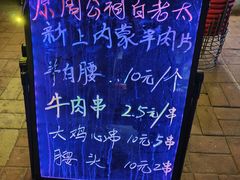 原周公祠白老太
新上内蒙羊肉片
羊白腰..10元/个
牛肉串 2.5元/串
大鸡心串 10元5串
腰头 10元2串